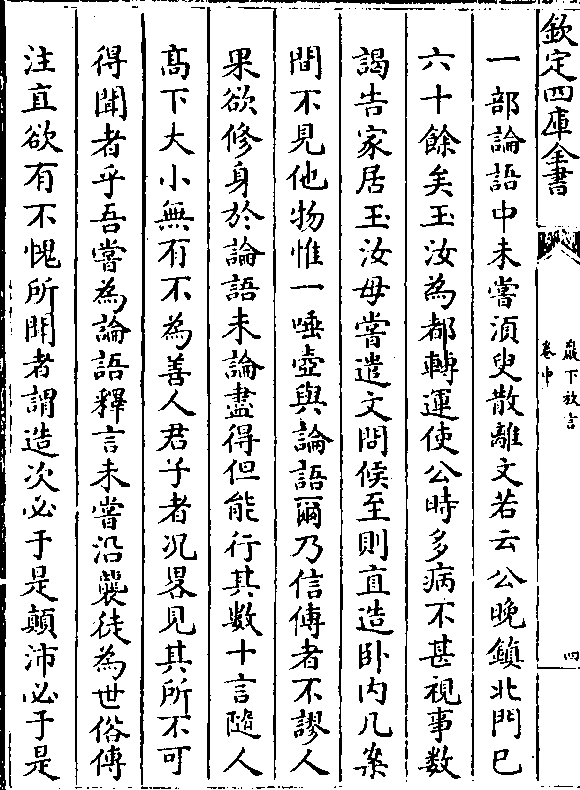 欽定四庫全書
巖下放言
卷中
四
一部論語中未嘗湏臾散離文若云公晚鎮北門已
六十餘矣玉汝為都轉運使公時多病不甚視事數
謁告家居玉汝毋嘗遣文問候至則直造卧内几案
間不見他物惟一唾壺與論語爾乃信傳者不謬人
果欲修身於論語未論盡得但能行其數十言隨人
髙下大小無有不為善人君子者况畧見其所不可
得聞者乎吾嘗為論語釋言未嘗沿襲徒為世俗傳
注直欲有不愧所聞者謂造次必于是顛沛必于是